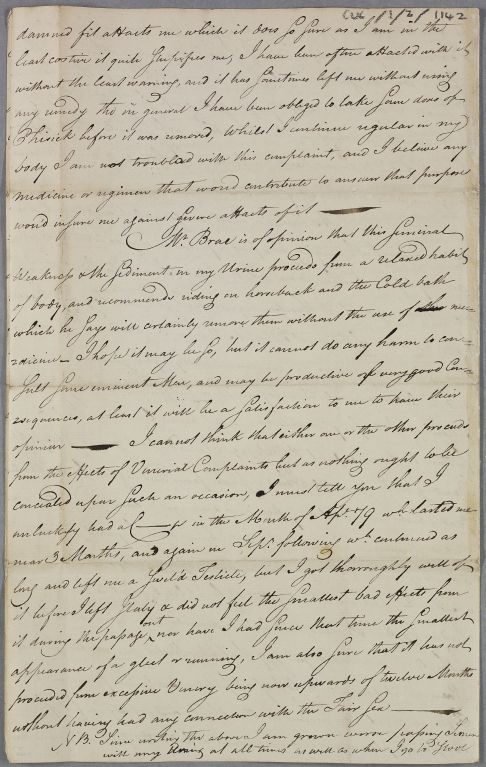 Cul/1/2/1142
damned fit attacts me which it does so sure as I am in the
least costive it quite stupifies me, I have been often attacted with it
without the least warning, and it has sometimes left me without using
any remedy tho' in general I have been obliged to take some doses of
Phisick before it was removed, Whilst I continue regular in my
body I am not troubled with this complaint, and I believe any
medicine or regimen that woud contribute to answer that purpose
woud insure me against severe attacts of it —
Mr. Brae is of opinion that this seminal
Weakness & the Sediment in my Urine proceeds from a relaxed habit
of body, and recommends riding on horseback and the Cold bath
which he says will certainly remove them without the use of me=
=dicine — I hope it may be so, but it cannot do any harm to con=
sult some eminent Men, and may be productive of very good Con=
=sequences, at least it will be a satisfaction to me to have their
opinion — I cannot think that either one or the other proceeds
from the effects of Venerial Complaints but as nothing ought to be
concealed upon such an occasion, I must tell you that I
unluckily had a C——p in the Month of Apl. 79 wh. lasted me
near 3 Months, and again in Sepr. following wh. continued as
long and left me a Swel'd Testicle, but I got thorroughly well of
it before I left Italy & did not feel the smallest bad effects from
it during the passage out nor have I had since that time the smallest
appearance of a gleet or running, I am also sure that it has not
proceeded from excessive Venery being now upwards of twelve Months
without having had any connection with the Fair Sex —
NB. Since writing the above I am grown worse passing Semen
with my Urine at all times as well as when I go to Stool